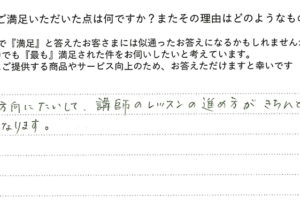 ご満足いただいた点は何ですか？またその理由はどのようなもの
で『満足』と答えたお客さまには似通ったお答えになるかもしれません
でも『最も』満足された件をお伺いしたいと考えています。
ご提供する商品やサービス向上のため、お答えただけますと幸いです
方向にたいして、講師のレッスンの進め方がきちんと
なります。